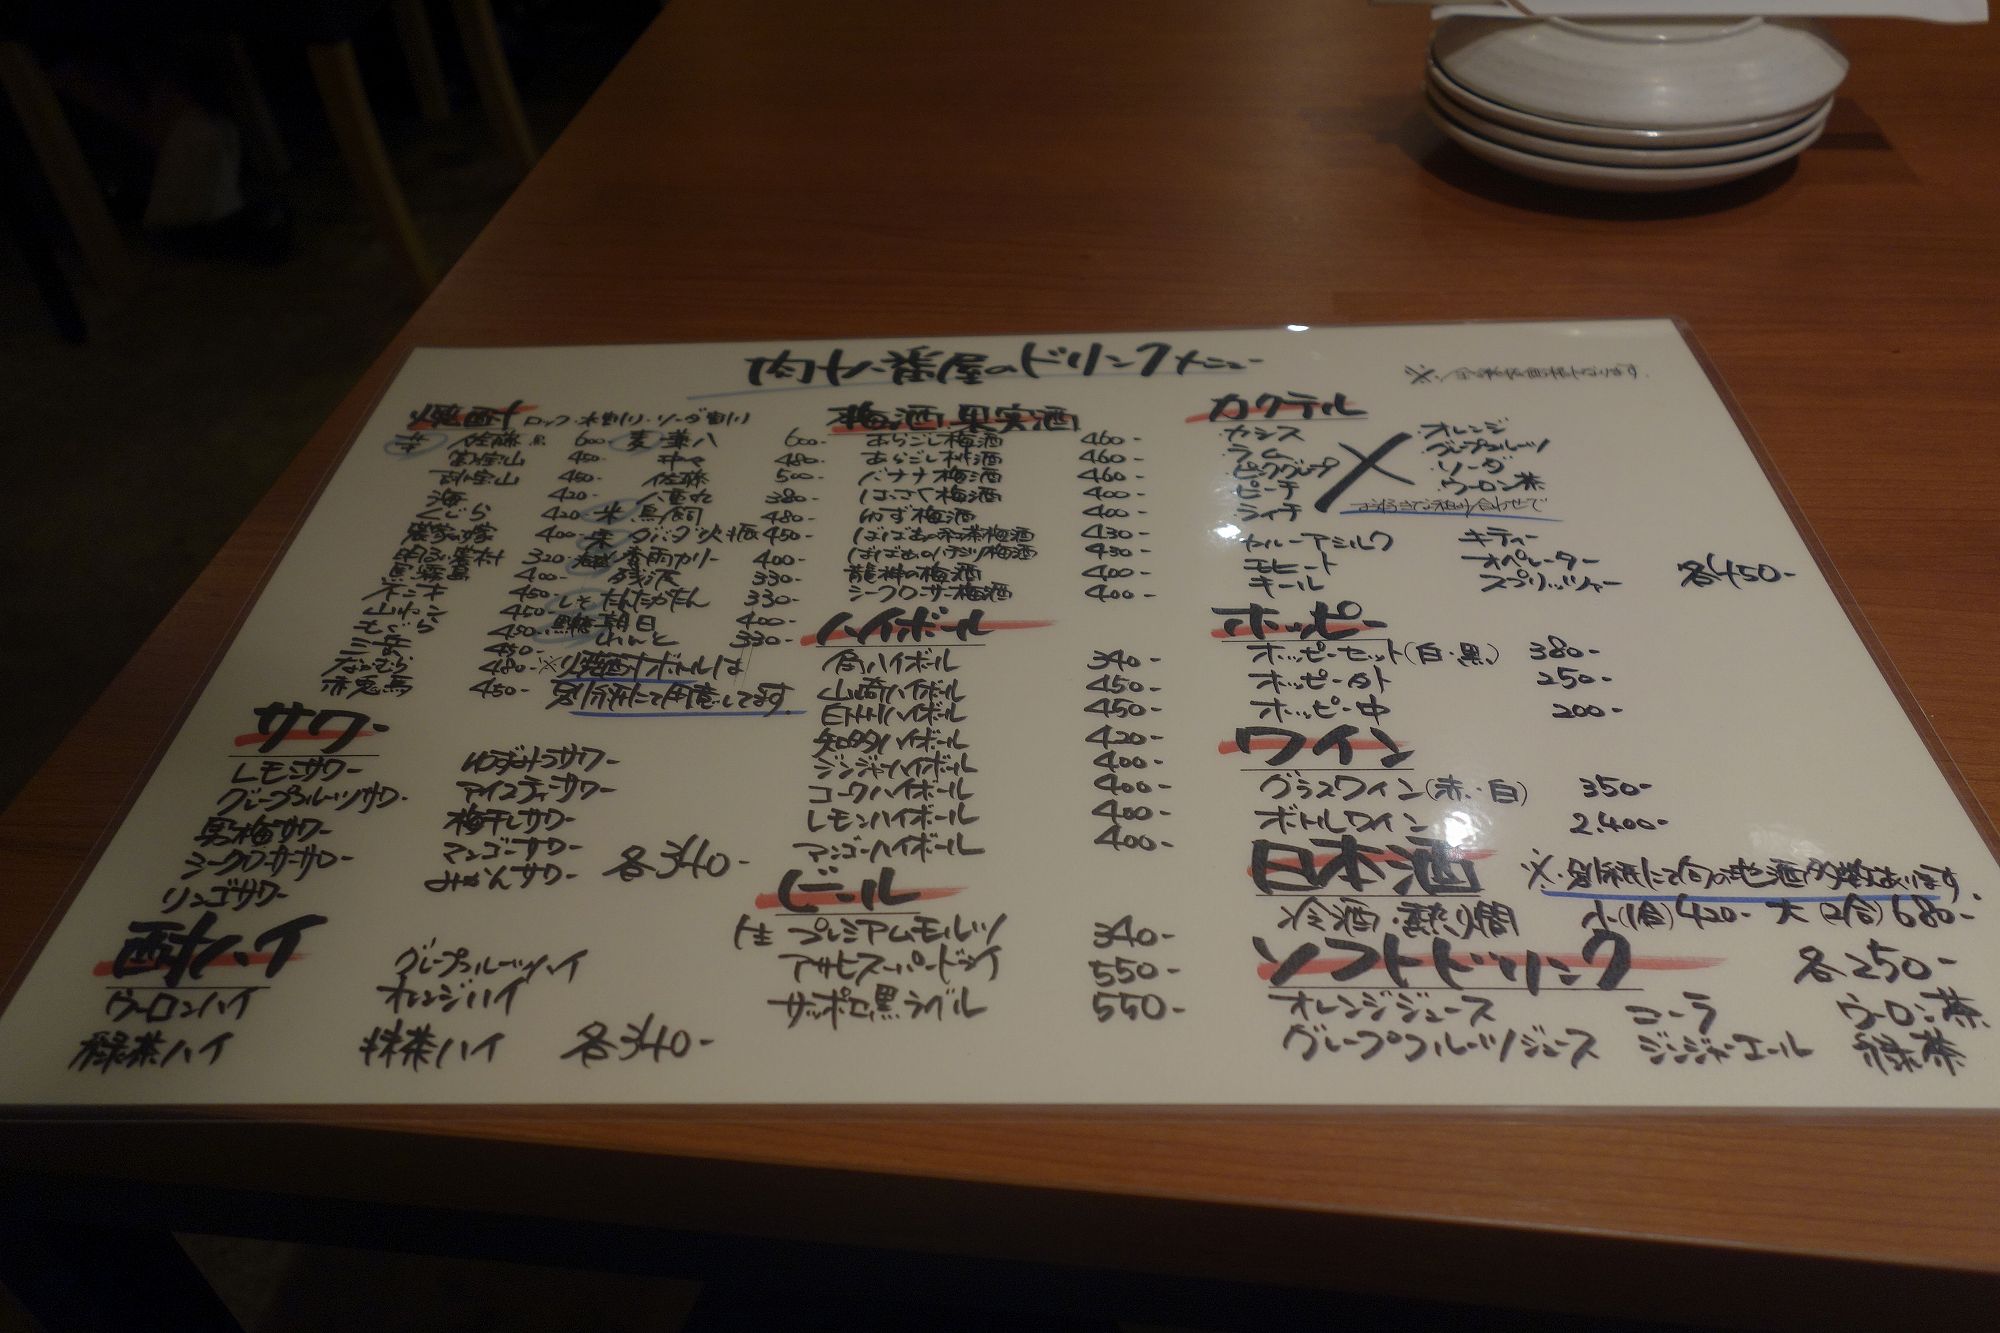 肉十八番屋のドリンクメニュー
焼酎 ロック・水割り・ソーダ割り
芋 佐藤 黒 600-
富乃宝山 450-
吉兆宝山 450-
海 420-
くじら 420-
農家の嫁 400-
320-
黒霧島 400-
450-
450-
もぐら 450-
三岳 450-
なかむら 480-
赤兎馬 450-
麦 兼八 600-
中々 480-
佐藤 500-
八重丸 380-
米 鳥飼 480-
450-
400-
残波 330-
しそ たんたかたん 330-
黒糖 朝日 400-
れんと 330-
※焼酎ボトルは
別紙にて用意してます。
サワー
レモンサワー
グレープフルーツサワー
男梅サワー
シークワーサーサワー
リンゴサワー
ゆずみつサワー
アイスティーサワー
梅干しサワー
マンゴーサワー
みかんサワー 各340-
酎ハイ
ウーロンハイ
緑茶ハイ
グレープフルーツハイ
オレンジハイ
抹茶ハイ 各340-
梅酒・果実酒
あらごし梅酒 460-
あらごし桃酒 460-
バナナ梅酒 460-
はっさく梅酒 400-
ゆず梅酒 400-
ばばあの紅茶梅酒 430-
ばばあのハチミツ梅酒 430-
龍神の梅酒 400-
シークワーサー梅酒 400-
ハイボール
角ハイボール 340-
山崎ハイボール 450-
白州ハイボール 450-
知多ハイボール 420-
ジンジャーハイボール 400-
コークハイボール 400-
レモンハイボール 400-
マンゴーハイボール 400-
ビール
生 プレミアムモルツ 340-
アサヒスーパードライ 550-
サッポロ黒ラベル 550-
カクテル
カシス
ラム
ピンクグレープ
ピーチ
ライチ
×
オレンジ
グレープフルーツ
ソーダ
ウーロン茶
お好きな組み合わせで
カルーアミルク
モヒート
キール
キティー
オペレーター
スプリッツァー 各450-
ホッピー
ホッピーセット(白・黒) 380-
ホッピー外 250-
ホッピー中 200-
ワイン
グラスワイン(赤・白) 350-
ボトルワイン 2.400-
日本酒 ※別紙にて旬の地酒多数あります。
冷酒・熱燗 小(1合)420- 大(2合)680-
ソフトドリンク 各250-
オレンジジュース コーラ ウーロン茶
グレープフルーツジュース ジンジャーエール 緑茶